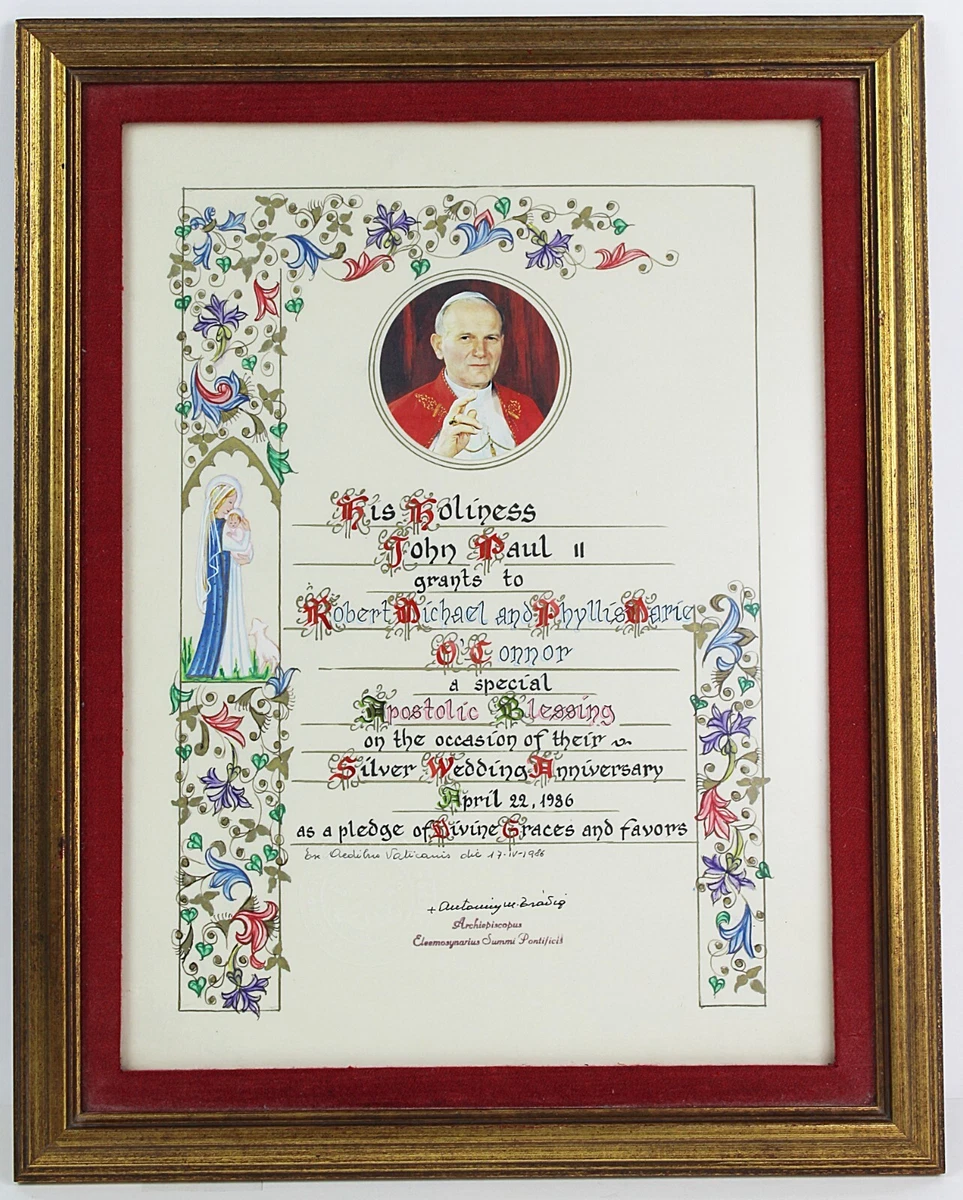 His Holiness
John Paul II
grants to
Robert Michael and Phyllis Marie
O'Connor
a special
Apostolic Blessing
on the occasion of their
Silver Wedding Anniversary
April 22, 1986
as a pledge of Divine Graces and favors
Ex Aedibus Vaticanis die 17-IV-1986
Archiepiscopus
Eleemosynarius Summi Pontificis